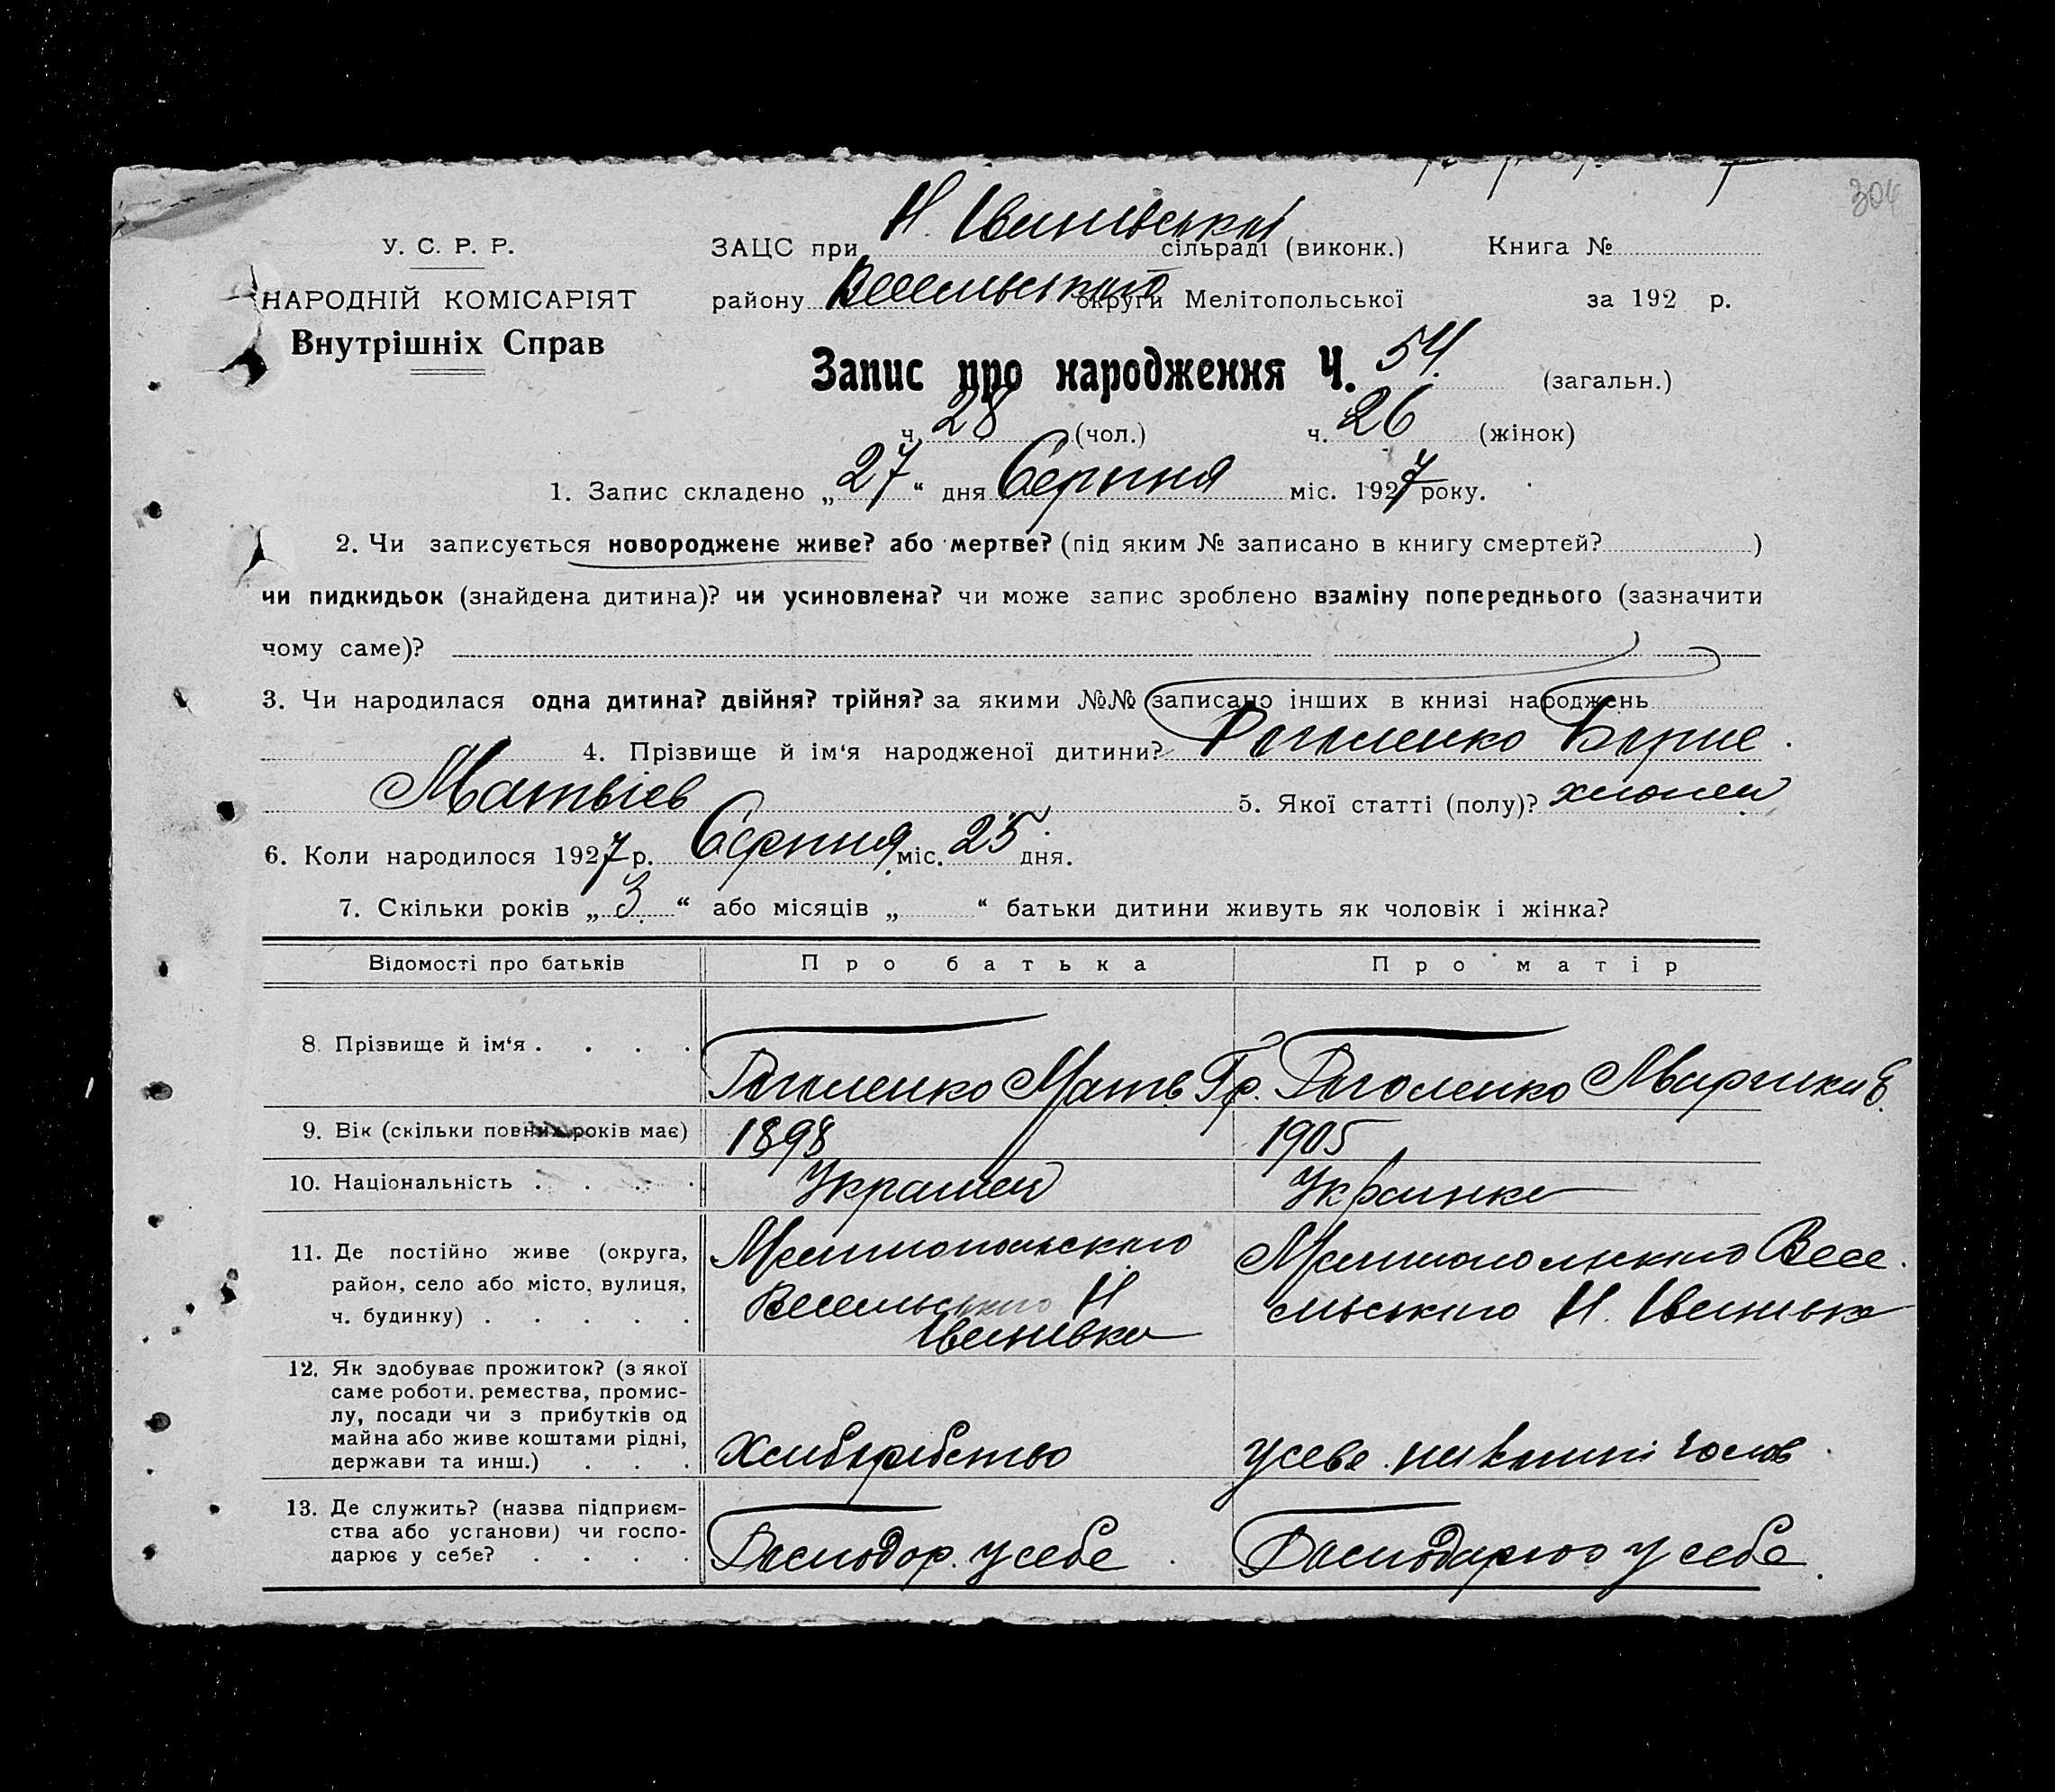 304
Н. Іванівській
У. С. Р. Р. ЗАЦС при сільраді (виконк.) Книга №
НАРОДНІЙ КОМІСАРІЯТ району Весельського округи Мелітопольської за 192 р.
Внутрішніх Справ
Запис про народження Ч. 54. (загальн.)
ч. 28 (чол.) ч. 26 (жінок)
1. Запис складено „27“ дня Серпня міс. 1927 року.
2. Чи записується новороджене живе? або мертве? (під яким № записано в книгу смертей? )
чи пидкидьок (знайдена дитина)? чи усиновлена? чи може запис зроблено взаміну попереднього (зазначити
чому саме)?
3. Чи народилася одна дитина? двійня? трійня? за якими №№ записано інших в книзі народжень
4. Прізвище й ім‘я народженої дитини? Гоголенко Борис
Матвіев 5. Якої статті (полу)? хлопец
6. Коли народилося 1927 р. Серпня міс. 25 дня.
7. Скільки років „3“ або місяців „ “ батьки дитини живуть як чоловік і жінка?
Відомості про батьків Про батька Про матір
8. Прізвище й ім‘я . . . . Гоголенко Матв. Гр. Гоголенко
9. Вік (скільки повних років має) 1898 1905
10. Національність . . . . Украінец Украинка
11. Де постійно живе (округа, Мелитопольского Мелитопольского Весе
район, село або місто, вулиця, Весельського Н льського Н. Іванивка
ч. будинку) . . . . . Іванивка
12. Як здобуває прожиток? (з якої
саме роботи. ремества, промис-
лу, посади чи з прибутків од
майна або живе коштами рідні, Хлиборобство усебе
держави та инш.) . . .
13. Де служить? (назва підприєм-
ства або установи) чи госпо- Господор. у себе Господарює у себе
дарює у себе? . . . .